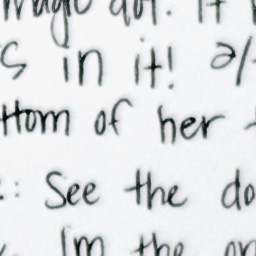 magic dot. It
s in it! a/
ttom of her
: See the do
I'm the on